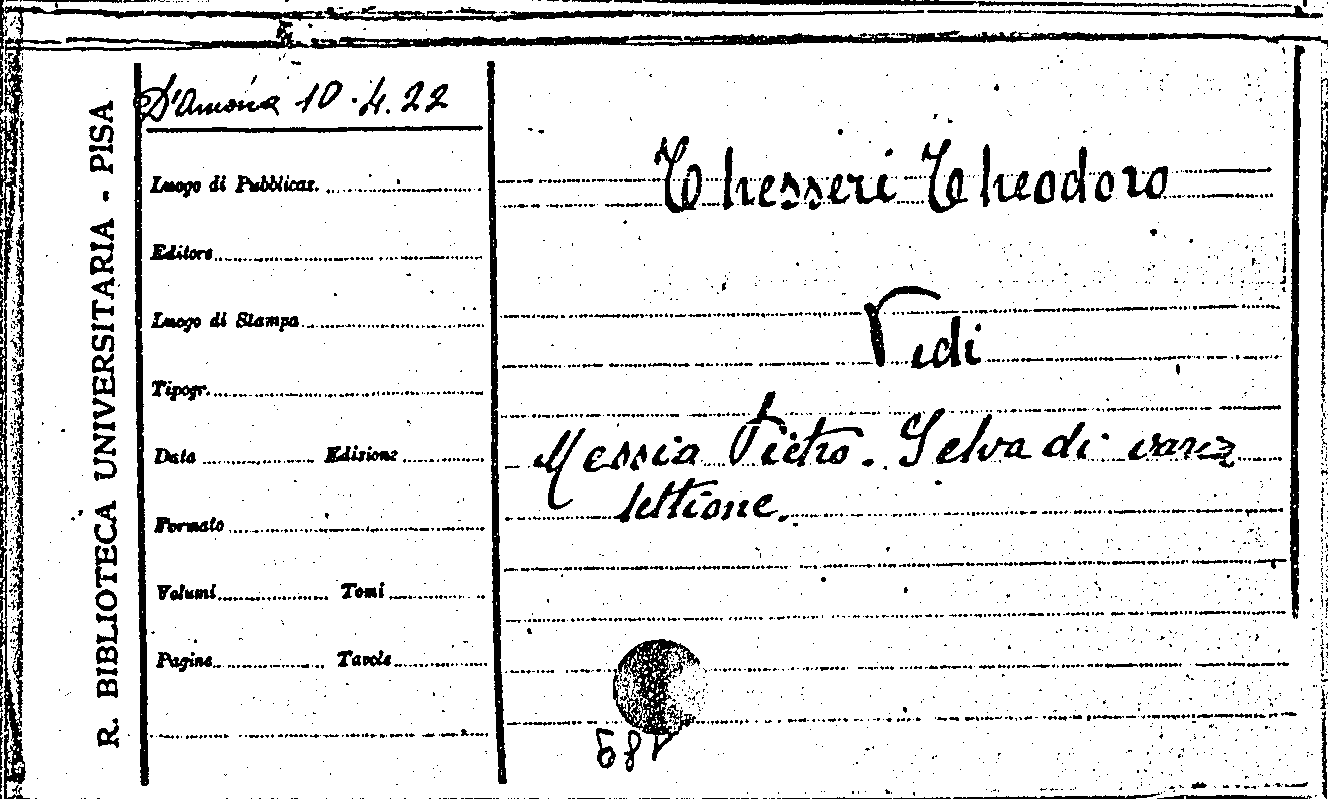 R. BIBLIOTECA UNIVERSITARIA - PISA
D'Amoria 10.4.22
Luogo di Pubblicaz.
Editore
Luogo di Stampa
Tipogr.
Data Edizione
Formato
Volumi Tomi
Pagine Tavole
Thesseri Theodoro
Vedi
Messia Pietro. Selva di varia
lettione.